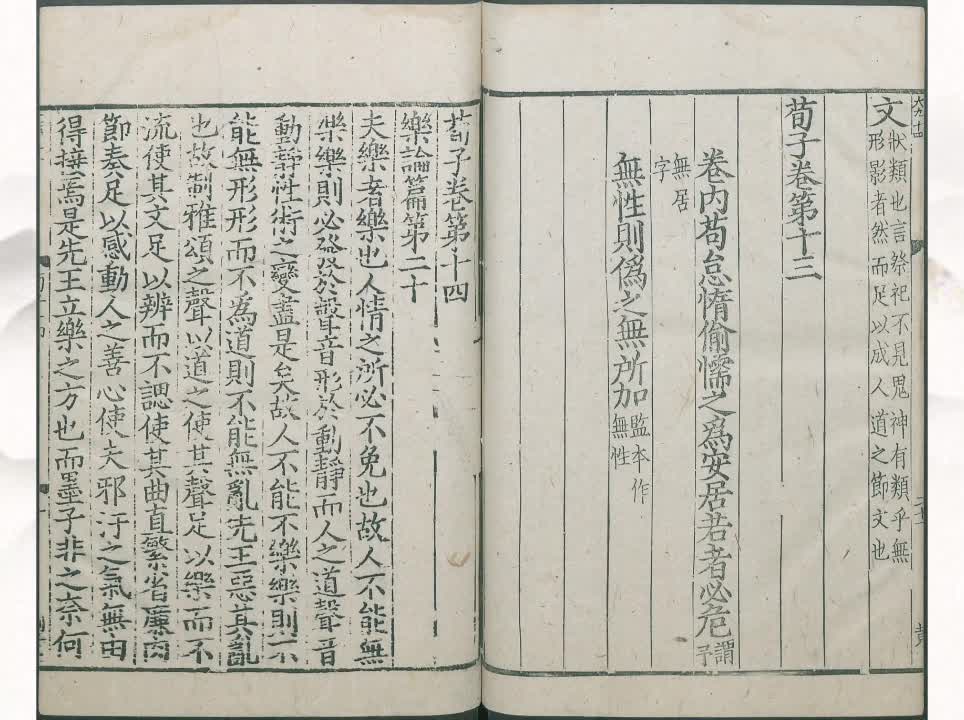 文狀類也言祭祀不見鬼神有類乎無
形影者然而足以成人道之節文也
荀子卷第十三
卷内苟怠惰偷懦之爲安居若者必危謂予
無居
字
無性則僞之無所加監本作
無性
荀子卷第十四
樂論篇第二十
夫樂者樂也人情之所必不免也故人不能無
樂樂則必發於聲音形於動靜而人之道聲音
動靜性術之變盡是矣故人不能不樂樂則不
能無形形而不爲道則不能無亂先王惡其亂
也故制雅頌之聲以道之使其聲足以樂而不
流使其文足以辨而不諰使其曲直繁省廉肉
節奏足以感動人之善心使夫邪汙之氣無由
得接焉是先王立樂之方也而墨子非之奈何